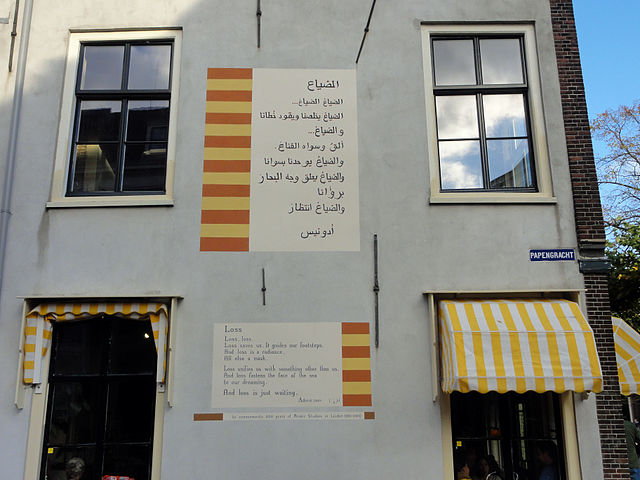 الضياع
الضياع الضياع...
الضياع يخلصنا ويقود خطانا
والضياع...
ألق وسواه القناع.
والضياع يوحدنا بسوانا
والضياع يعلق وجه البحار
برؤانا
والضياع انتظار
أدونيس
PAPENGRACHT
Loss
Loss, loss.
Loss saves us. It guides our footsteps.
And loss is a radiance.
All else a mask.
Loss unifies us with something other than us.
And loss fastens the face of the sea
to our dreaming.
And loss is just waiting.
in commemoration 400 years of Arabic Studies in Leiden